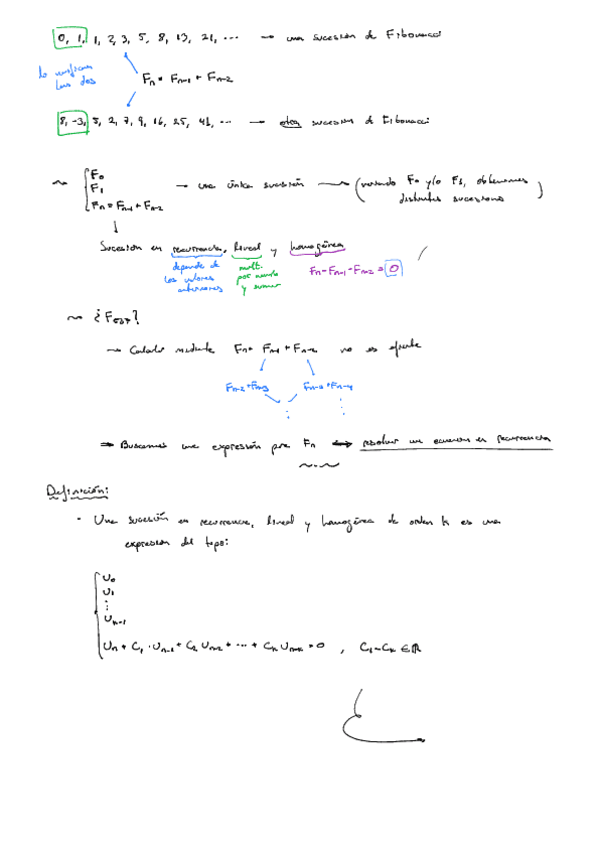 0, 1, 1, 2, 3, 5, 8, 13, 21, ... → una sucesión de Fibonacci
lo verifican
las dos
Fn = Fn-1 + Fn-2
8, -3, 5, 2, 7, 9, 16, 25, 41, ... → otra sucesión de Fibonacci
F0
F1
Fn = Fn-1 + Fn-2
→ una única sucesión → (variando F0 y/o F1, obtenemos
distintas sucesiones)
Sucesión en recurrencia, lineal y homogénea
depende de
los valores
anteriores
mult.
por
y sumar
Fn - Fn-1 - Fn-2 = 0
¿F637?
→ Calcular mediante Fn = Fn-1 + Fn-2 no es eficiente
Fn-2 + Fn-3 Fn-3 + Fn-4
⇒ Buscamos una expresión para Fn ↔ resolver una ecuación en recurrencia
Definición:
- Una sucesión en recurrencia, lineal y homogénea de orden k es una
expresión del tipo:
U0
U1
⋮
Uk-1
Un + C1 · Un-1 + C2 Un-2 + ... + Ck Un-k = 0 , C1-Ck ∈ ℝ